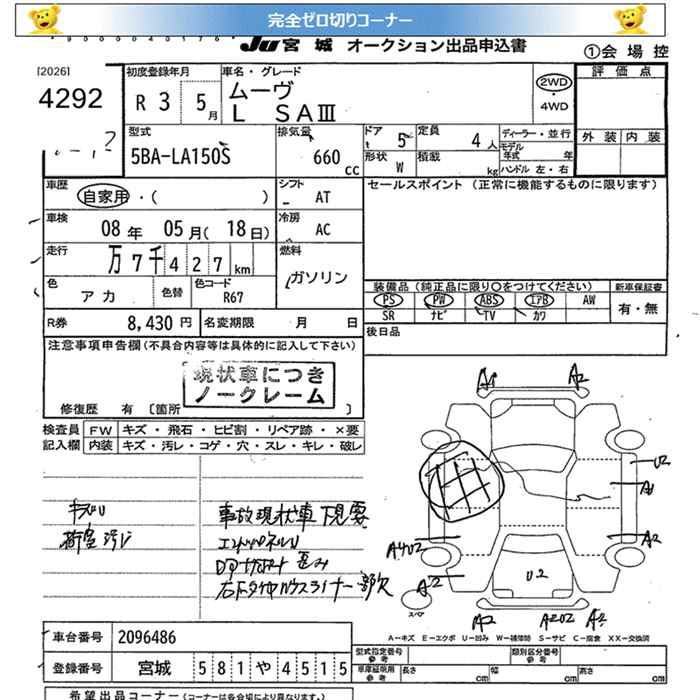 完全ゼロ切りコーナー
JU 宮城 オークション出品申込書
①会場控
[2026]
4292
初度登録年月
R 3 5月
車名・グレード
ムーヴ
L SAⅢ
2WD
・4WD
評価点
外装 内装
型式
5BA-LA150S
排気量
660 cc
ドア 5
定員 4人
形状 W
積載 kg
ディーラー・並行
モデル年式 年
ハンドル 左・右
車歴
自家用・( )
シフト
AT
セールスポイント (正常に機能するものに限ります)
車検
08年 05月(18日)
冷房
AC
走行
万7千427km
燃料
ガソリン
色
アカ
色替
色コード
R67
装備品(純正品に限り○をつけてください)
新車保証書
PS PW ABS エアB AW
SR ナビ TV カワ
有・無
R券
8,430円
名変期限 月 日
後日品
注意事項申告欄(不具合内容等は具体的に記入して下さい)
現状車につき
ノークレーム
修復歴 有 [箇所 ]
検査員記入欄
FW キズ・飛石・ヒビ割・リペア跡・×要
内装 キズ・汚レ・コゲ・穴・スレ・キレ・破レ
キズU
事故現状車 下見要
歪み
A1 A2
U2
A1
A2
A4U2
A2
U2
スペア
A2 A2U2 A2
A-キズ E-エクボ U-凹み W-補修跡 S-サビ C-腐食 XX-交換済
車台番号
2096486
登録番号
宮城 581や4515
型式指定番号
参考
類別区分番号
参考
車庫証明用
参考
長さ cm
幅 cm
高さ cm
希望出品コーナー(コーナーは各会場により異なります。)